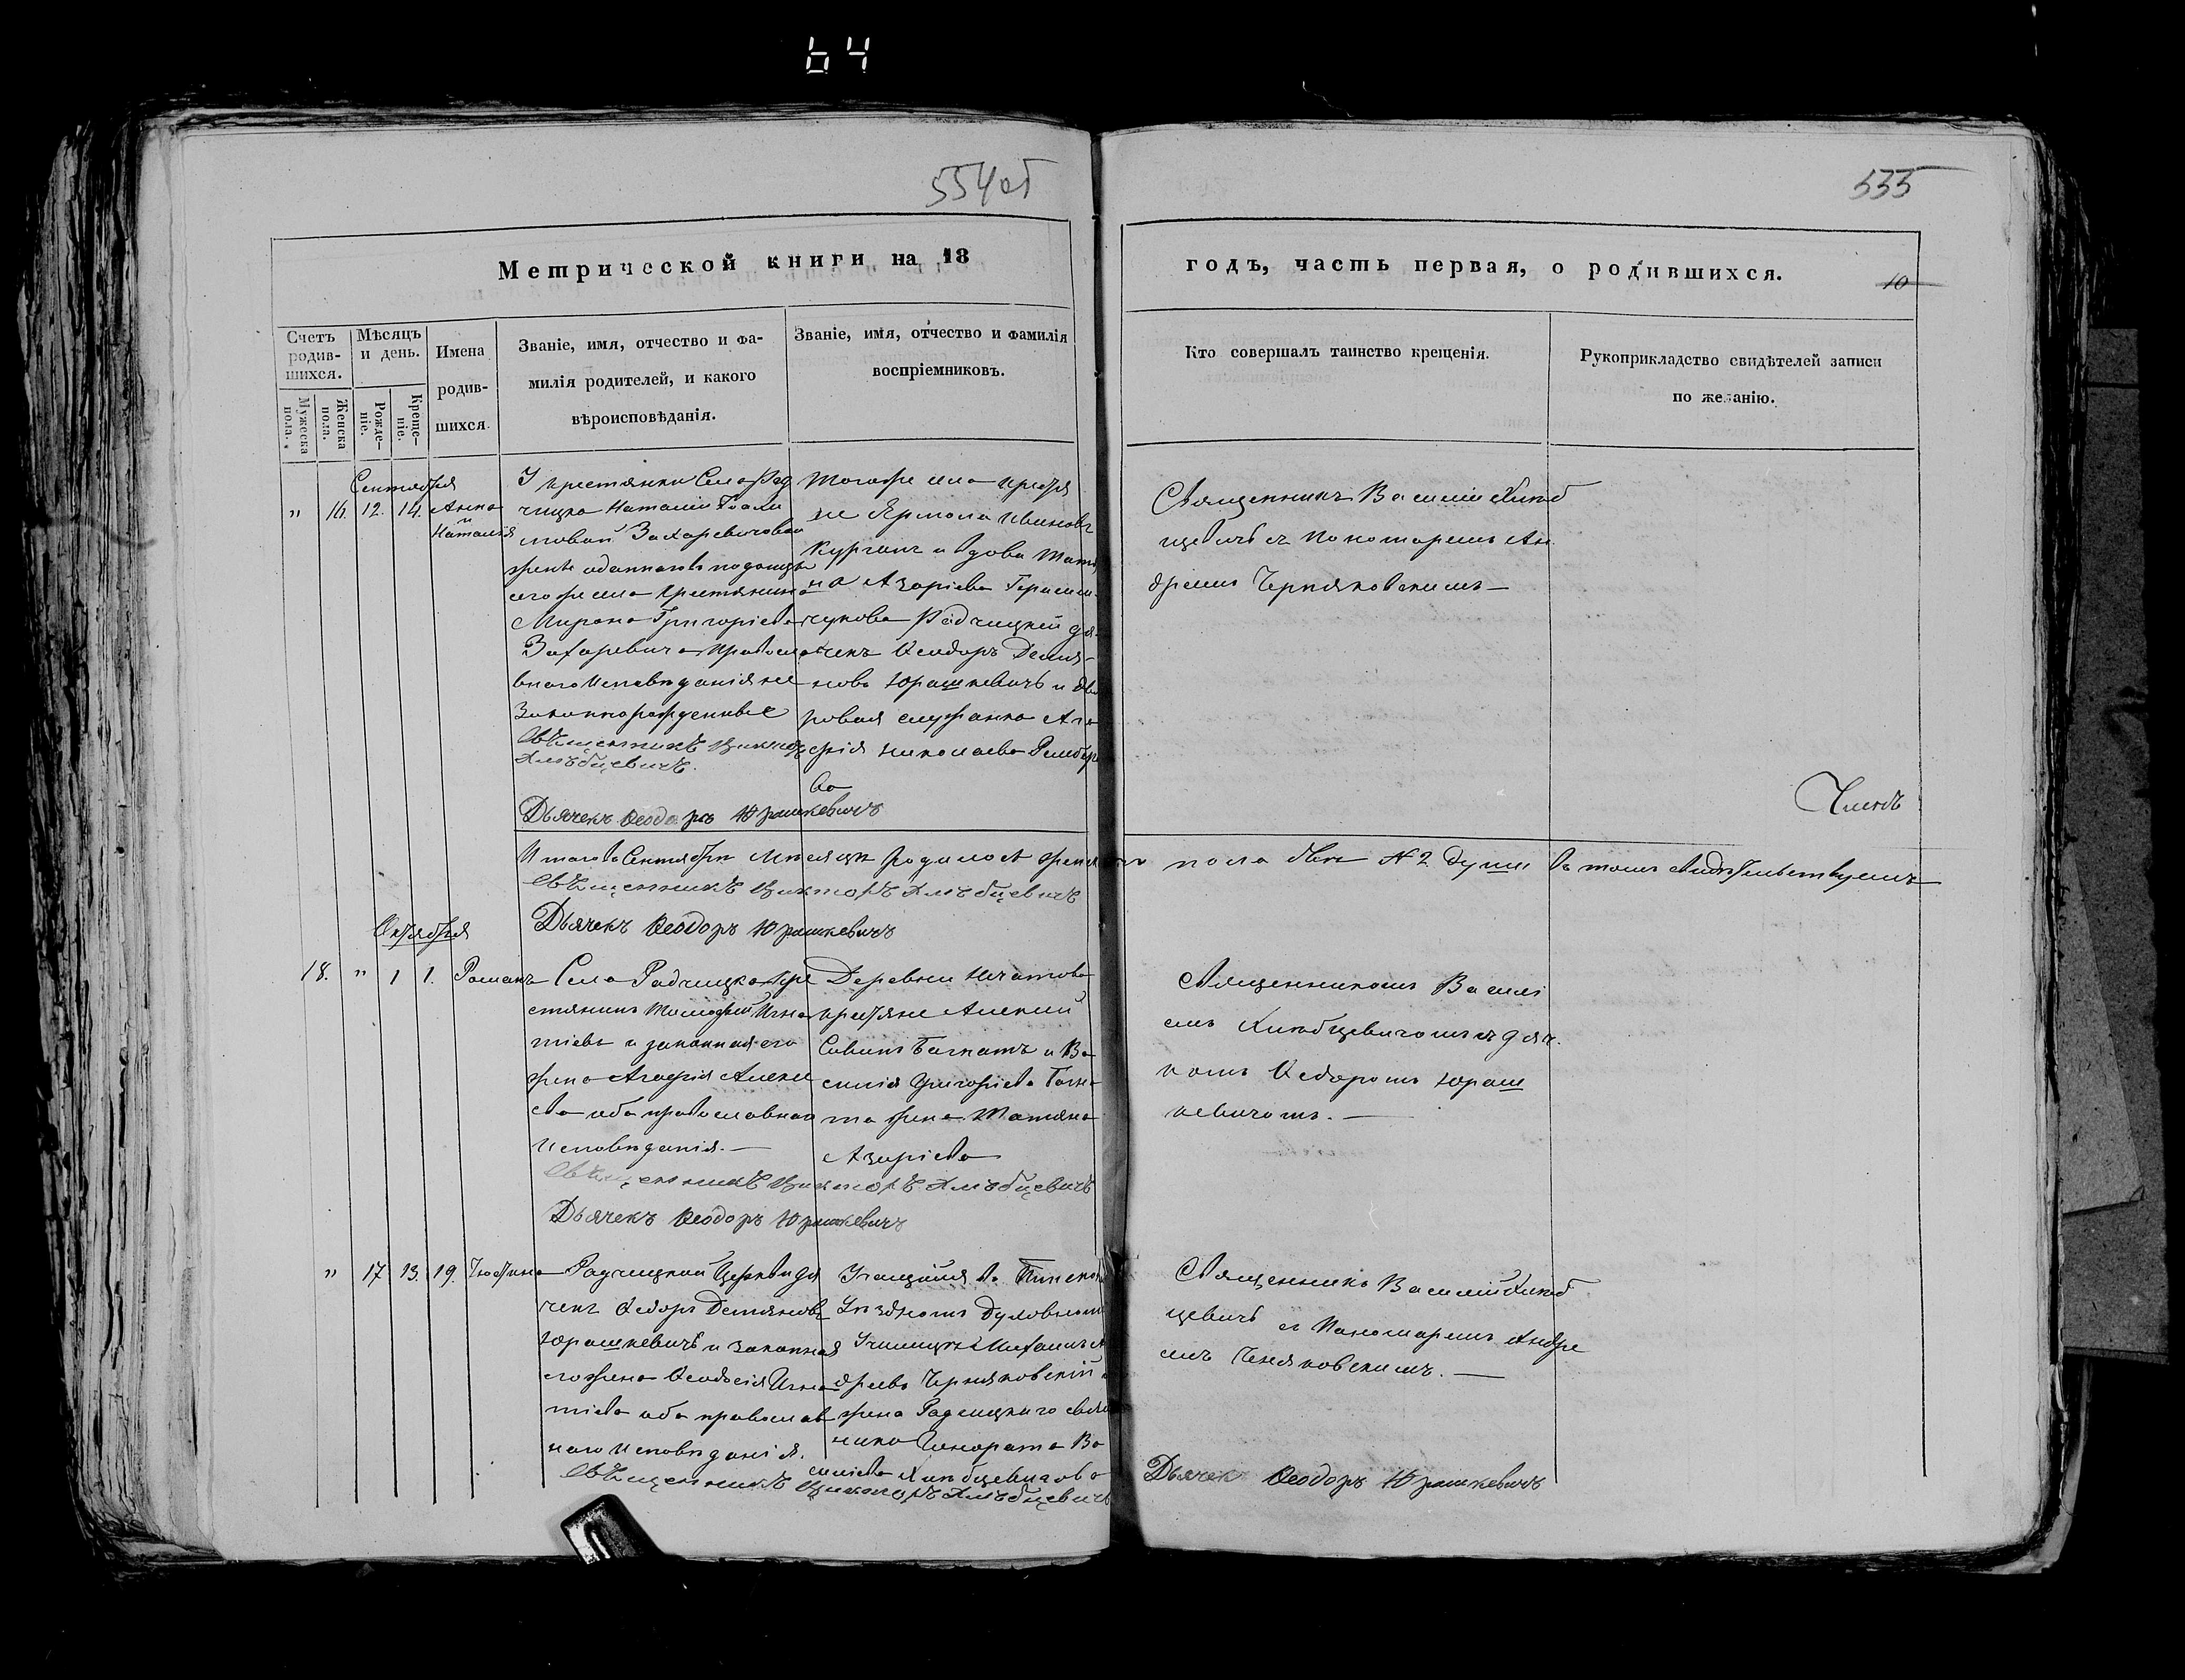 64
554об
555
Метрической книги на 18
годъ, часть первая, о родившихся.
10
Счетъ родив-шихся.
Мѣсяцъ и день.
Имена родив-шихся.
Званіе, имя, отчество и фа-
милія родителей, и какого
вѣроисповѣданія.
Званіе, имя, отчество и фамилія
воспріемниковъ.
Кто совершалъ таинство крещенія.
Рукоприкладство свидѣтелей записи
по желанію.
Мужеска пола.
Женска пола.
Рожде-ніе.
Креще-ніе.
Сентября
" 16. 12. 14. Анна
и
Наталія
У крестянки Села Рад
чицка Наталіи
Захаревичовой
жены
Мирона Григоріева
Захаревича Правосла
внаго Исповѣданія не
Законнорожденные
Священникъ Викторъ
Хлѣбцевичъ.
Дьячекъ Ѳеодоръ Юрашкевичъ
Тогоже села кресть
не Ярмола Ивановъ
Курганъ и вдова Татья
на Азаріева Гераси
чукова Радчицкій дя
чекъ Ѳеодоръ Демья
новъ Юрашкевичъ и дво
ровая служанка Ага
фія Николаева
ва
Священникъ Василій Хлѣб
цевичъ съ Пономаремъ Ан
дреемъ Черняковскимъ —
Членъ
Итого въ Сентябрѣ Мѣсяцѣ родилось женска
го пола двѣ № 2 души въ томъ свидѣтельствуемъ
Священникъ Викторъ Хлѣбцевичъ
Дьячекъ Ѳеодоръ Юрашкевичъ
Октября
18. " 1 1. Романъ
Села Радчицка кре
стянинъ Тимофей Игна
тіевъ и законная его
жена Агафія Алексе
ева оба православнаго
Исповѣданія. —
Священникъ Викторъ Хлѣбцевичъ
Дьячекъ Ѳеодоръ Юрашкевичъ
Деревни
крестяне Алексий
Савинъ Багнатъ и Ва
силія Григоріева Багна
та жена Татяна
Азаріева
Священникомъ Василі
емъ Хлѣбцевичомъ съ дяч
комъ Ѳедоромъ Юраш
кевичомъ. —
" 17 13. 19. Іюстина
Радчицкой Церкви дя
чекъ Ѳедоръ Демяновъ
Юрашкевичъ и законная
его жена Ѳеодосія Игна
тіева оба православ
наго Исповѣданія.
Священникъ Викторъ Хлѣбцевичъ
Учащійся въ Пинскомъ
Уѣздномъ Духовномъ
Училищѣ Михаилъ Ан
дреевъ Черняковскій и
жена Радчицкаго свяще
ника Гонората Ва
силіева Хлѣбцевичова
Священникъ Василій Хлѣб
цевичъ съ Пономаремъ Андре
емъ Черняковскимъ. —
Дьячекъ Ѳеодоръ Юрашкевичъ